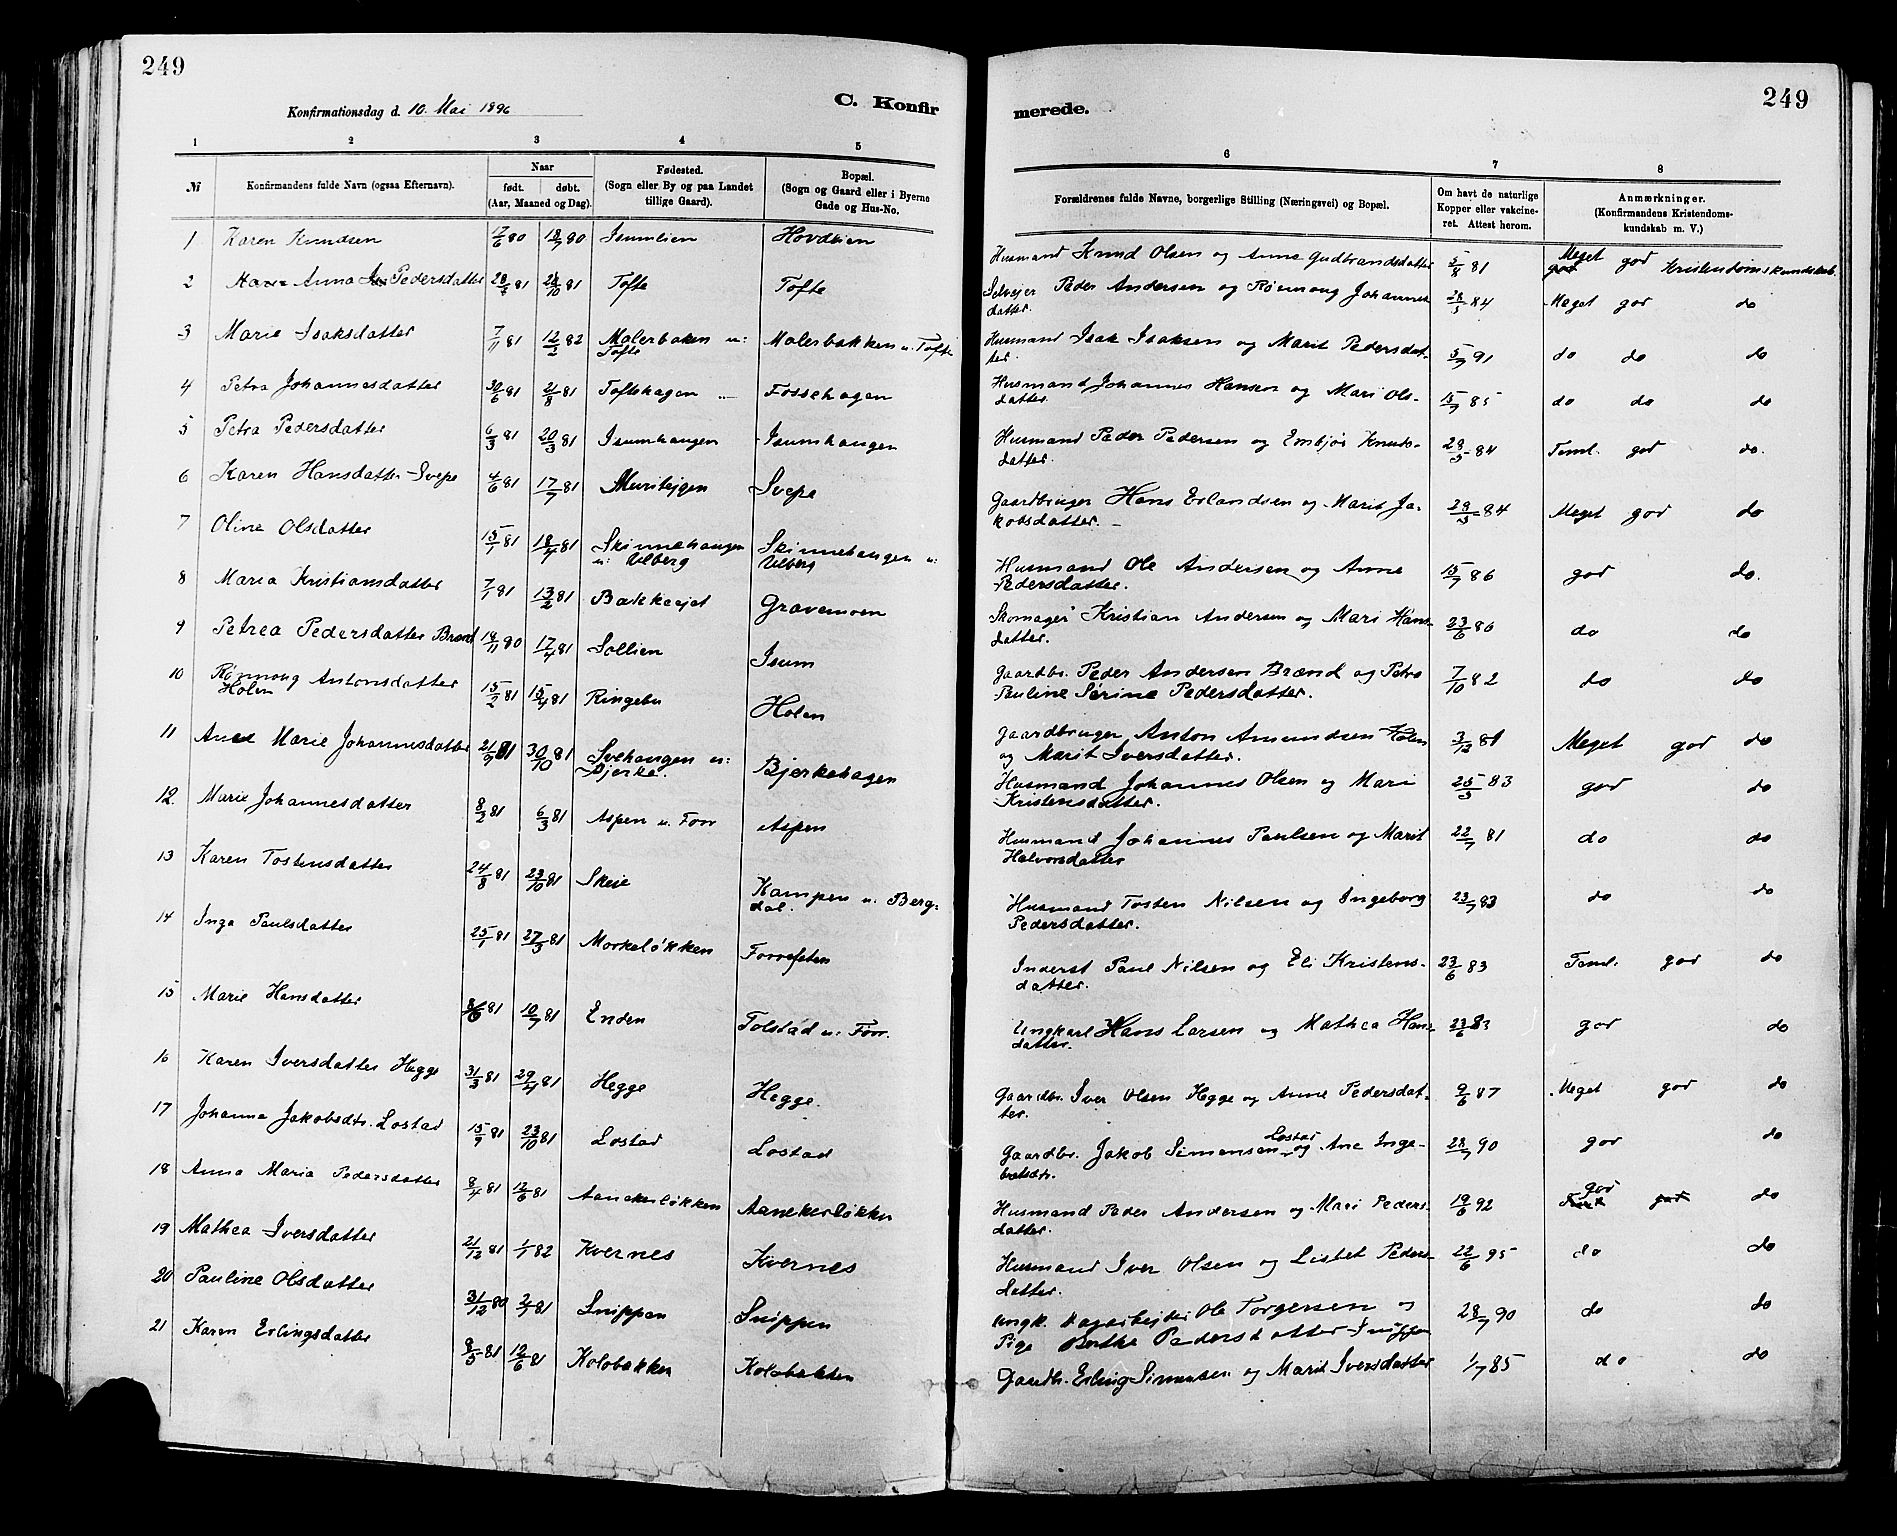 249
Konfirmationsdag d. 10. Mai 1896
C. Konfir
merede.
249
1 2 3 4 5 6 7 8
№
Konfirmandens fulde Navn (ogsaa Efternavn).
Naar
født. døbt.
(Aar, Maaned og Dag).
Fødested.
(Sogn eller By og paa Landet
tillige Gaard).
Bopæl.
(Sogn og Gaard eller i Byerne
Gade og Hus-No.
Forældrenes fulde Navne, borgerlige Stilling (Næringsvei) og Bopæl.
Om havt de naturlige
Kopper eller vakcine-
ret. Attest herom.
Anmærkninger.
(Konfirmandens Kristendoms-
kundskab m. V.)
1 Karen Knudsen 17/6 80 18/7 80 Isumlien Hovdlien Husmand Knud Olsen og Anne Gudbrandsdatter 5/8 81 Meget god Kristendomskundskab
2 Anna Pedersdatter 81 81 Tofte Tofte Selveier Peder Andersen og Rønnoug Johannes-
datter. 28/5 84 Meget god do
3 Marie Isaksdatter 7/11 81 12/2 82 Malerbaken u: Malerbakken u. Tofte Husmand Isak Isaksen og Marit Pedersdat-
Tofte ter. 5/7 91 do do do
4 Petra Johannesdatter 30/6 81 21/8 81 Toftehagen Fossehagen Husmand Johannes Hansen og Mari Ols-
datter. 15/7 85 do do do
5 Petra Pedersdatter 6/3 81 20/3 81 Isumhaugen Isumhaugen Husmand Peder Pedersen og Embjør Knuds-
datter. 28/5 84 Teml. god do.
6 Karen Hansdatter Svepe 4/6 81 17/7 81 Svepe Gaardbruger Hans Erlandsen og Marit Ja-
kobsdatter. 28/5 84 Meget god do
7 Oline Olsdatter 15/1 81 18/4 81 Skinnehaugen Skinnehaugen u: Husmand Ole Andersen og Anne
u: Ulberg Ulberg Pedersdatter. 15/7 86 god do.
8 Maria Kristiansdatter 7/1 81 13/2 81 Bakkeejet Gravemoen Skomager Kristian Andersen og Mari Hans-
datter. 23/6 86 do do
9 Petrea Pedersdatter Brænd 18/11 80 17/4 81 Sollien Isum Gaardbr. Peder Andersen Brænd og Petra
Pauline Serine Pedersdatter. 7/10 82 do do
10 Rønnoug Antonsdatter 15/2 81 15/4 81 Ringebu Holen Gaardbruger Anton Amundsen Holen
Holen og Marit Iversdatter. 3/12 81 Meget god do
11 Ane Marie Johannesdatter 21/9 81 30/10 81 Svehaugen u: Bjerkehagen Husmand Johannes Olsen og Mari
Bjerke. Kristensdatter. 25/5 83 god do
12. Marie Johannesdatter 8/2 81 6/3 81 Aspen u. Forr Aspen Husmand Johannes Paulsen og Marit
Halvorsdatter 22/7 81 do do
13 Karen Tostensdatter 24/8 81 23/10 81 Skeie Kampen u. Berg-
dal. Husmand Tosten Nilsen og Ingeborg
Pedersdatter. 23/7 83 do do
14 Inga Paulsdatter 25/1 81 27/3 81 Morkeløkken Forrefeten Inderst Paul Nilsen og Eli Kristens-
datter. 23/6 83 Teml. god do
15 Marie Hansdatter 81 10/7 81 Enden Tolstad u: Forr. Ungkarl Hans Larsen og Mathea Hans-
datter. 23/6 83 god do
16 Karen Iversdatter Hegge 31/3 81 29/4 81 Hegge Hegge. Gaardbr. Iver Olsen Hegge og Anne Pedersdat-
ter. 9/6 87 Meget god do
17 Johanna Jakobsdtr. Lostad 15/9 81 23/10 81 Lostad Lostad Gaardbr. Jakob Simensen Lostad og Ane Inge-
bretsdtr. 28/7 90 god do
18 Anna Maria Pedersdatter 8/4 81 12/6 81 Aanekerløkken Aanekerløkken Husmand Peder Andersen og Mari Peders-
datter. 19/6 92 god do
19 Mathea Iversdatter 21/12 81 1/1 82 Kvernes Kvernes Husmand Iver Olsen og Lisbet Peders-
datter. 22/6 95 do do
20 Pauline Olsdatter 31/12 80 2/7 81 Snippen Snippen Ungk. Ole Torgersen og
Pige Berthe Pedersdatter Snippen 28/7 90 do do
21 Karen Erlingsdatter 8/5 81 12/6 81 Kolobakken Kolobakken Gaardbr. Erling Simensen og Marit Iversdatter 1/7 85 do do